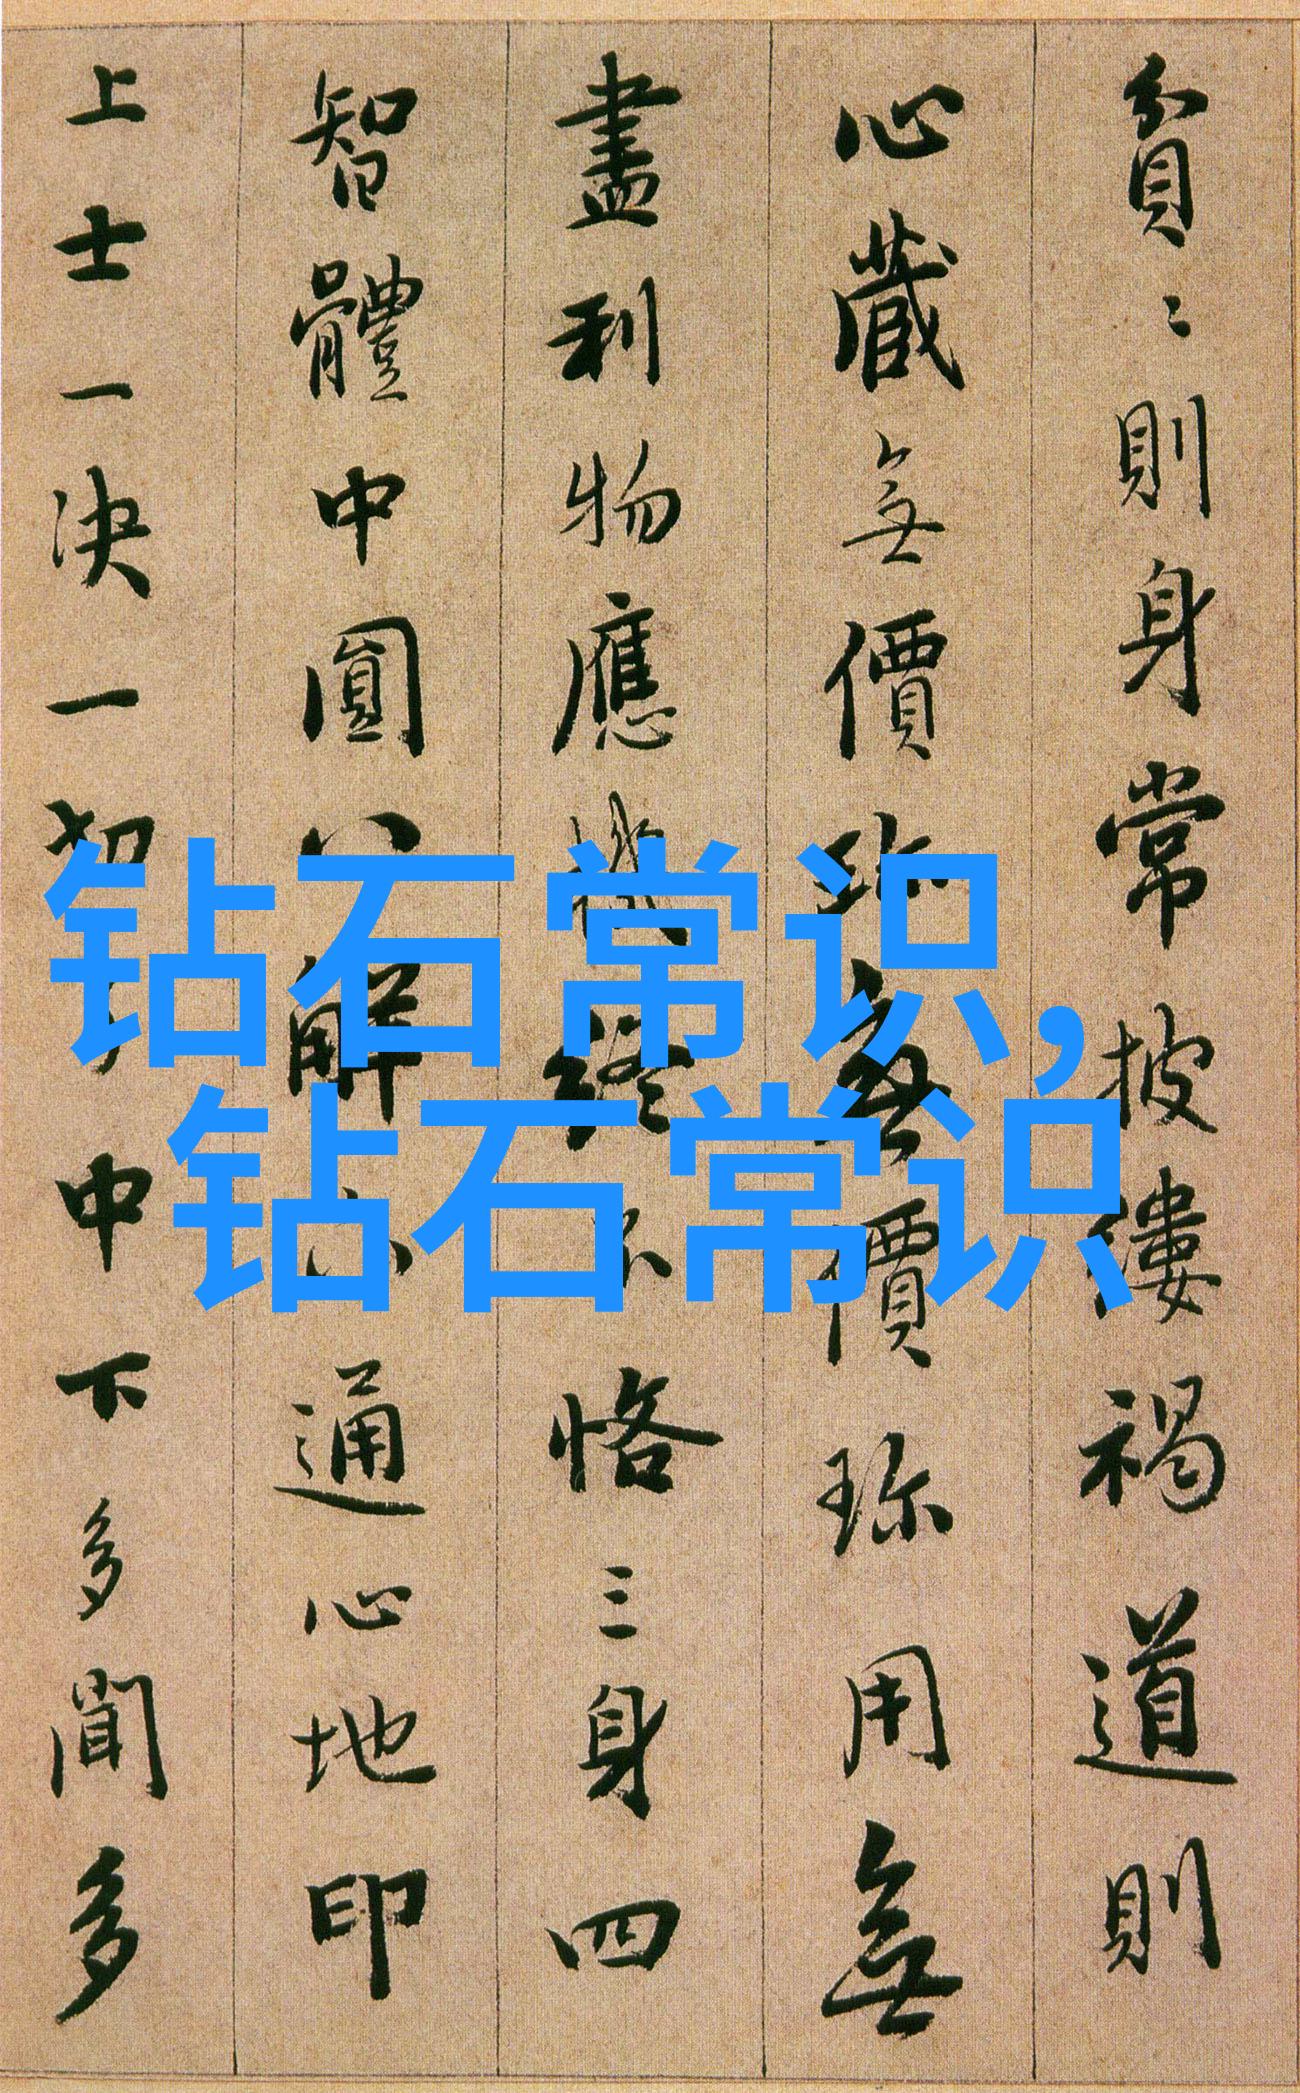 貧〻則身常披縷褐道則
心藏無價珍無價珍用無
盡利物應機終不恪三身四
智體中圓八解通心地印
上士一决一切中下多聞多
钻石常识,
钻石常识